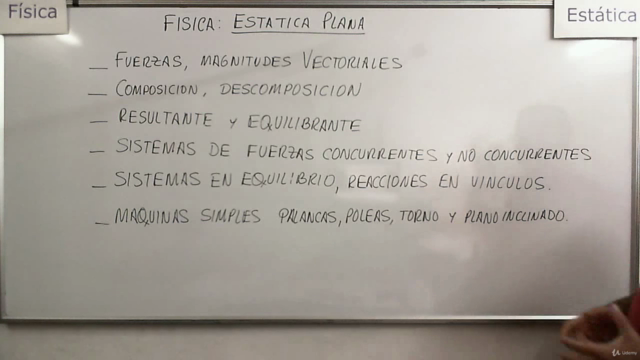 Física
Estática
FISICA: ESTATICA PLANA
— FUERZAS, MAGNITUDES VECTORIALES
— COMPOSICION, DESCOMPOSICION
— RESULTANTE Y EQUILIBRANTE
— SISTEMAS DE FUERZAS CONCURRENTES Y NO CONCURRENTES
— SISTEMAS EN EQUILIBRIO, REACCIONES EN VINCULOS.
— MAQUINAS SIMPLES PALANCAS, POLEAS, TORNO Y PLANO INCLINADO.
Udemy